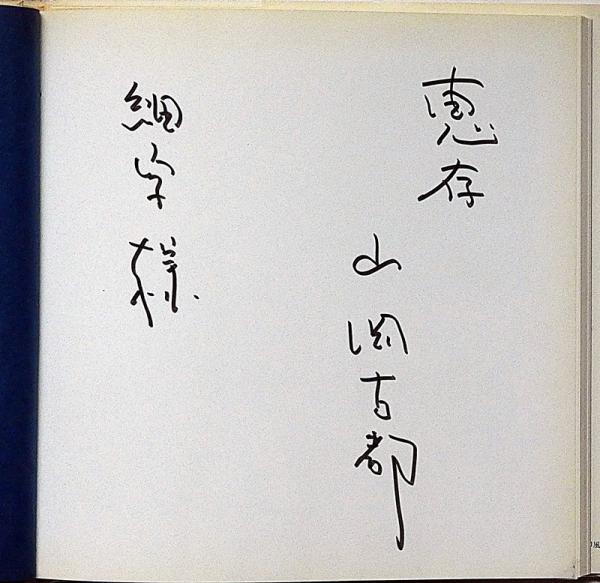 恵存
山岡古都
細字様
風